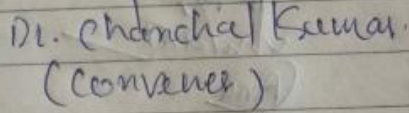 Dr. Chanchal Kumar.
(Convener)